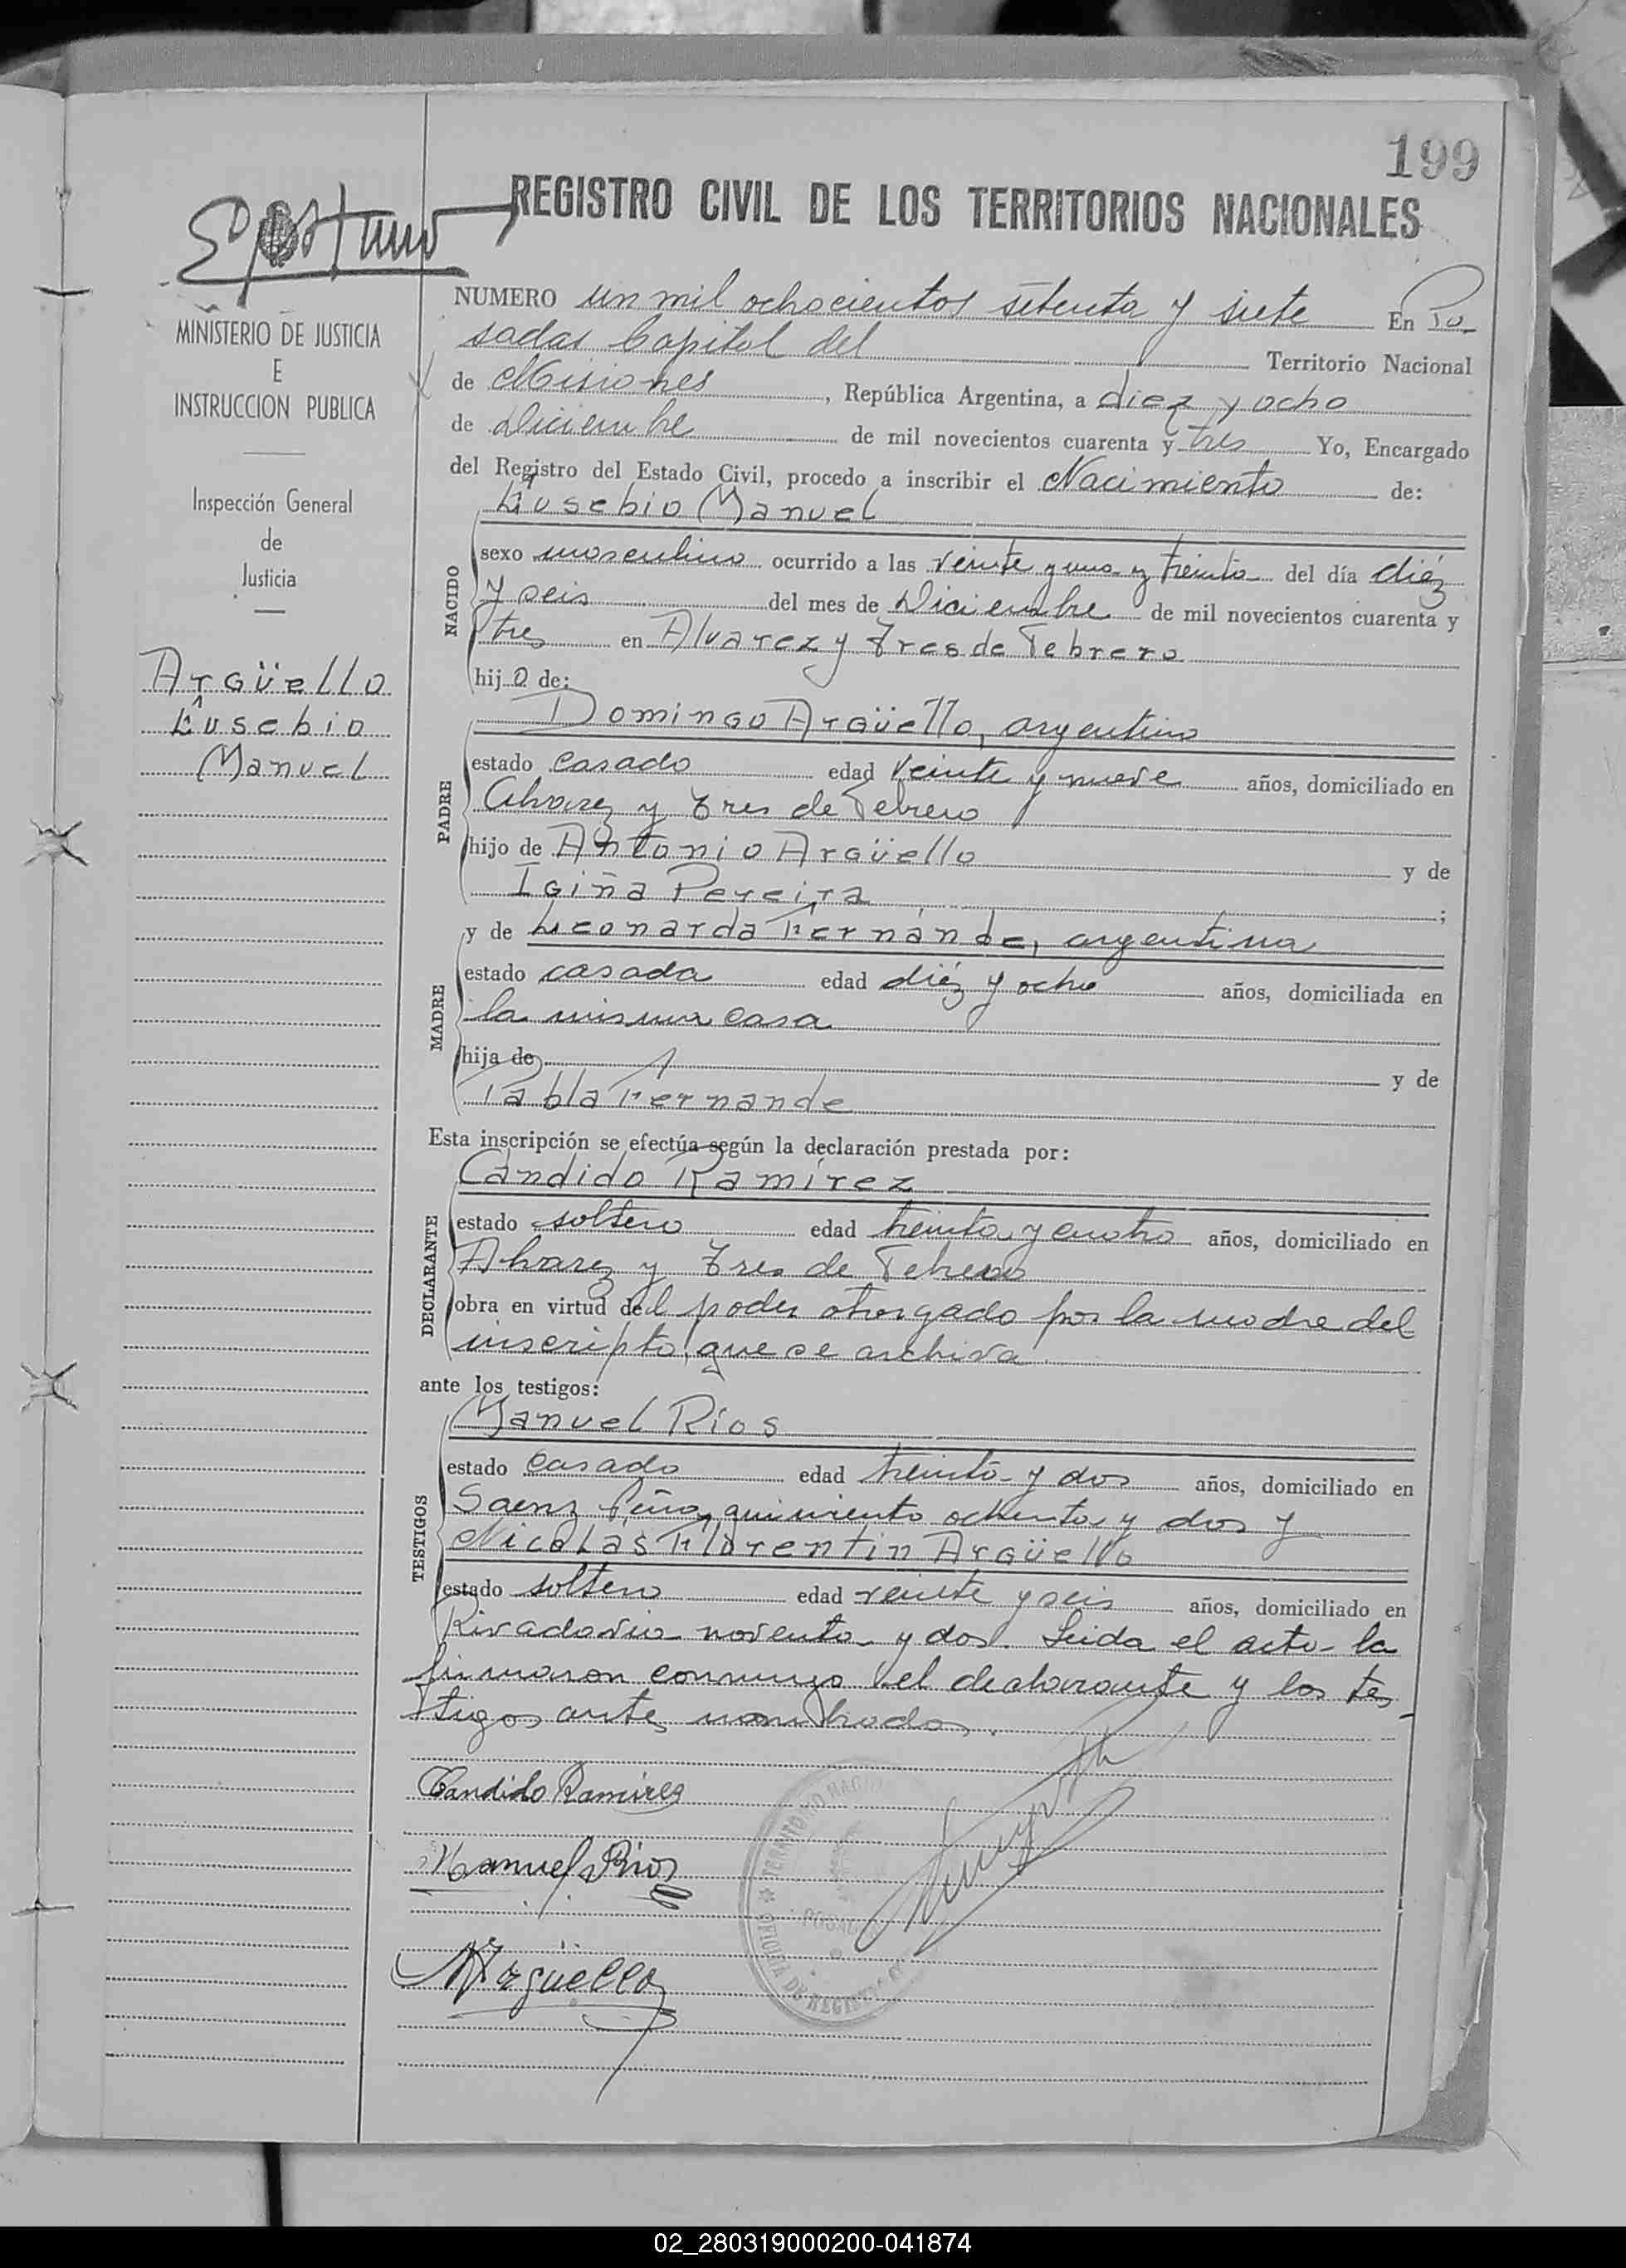 199
REGISTRO CIVIL DE LOS TERRITORIOS NACIONALES
MINISTERIO DE JUSTICIA
E
INSTRUCCION PUBLICA
Inspección General
de
Justicia
Argüello
Eusebio
Manuel
NUMERO un mil ochocientos setenta y siete En Po-
sadas Capital del Territorio Nacional
de Misiones, República Argentina, a diez y ocho
de Diciembre de mil novecientos cuarenta y tres Yo, Encargado
del Registro del Estado Civil, procedo a inscribir el Nacimiento de:
Eusebio Manuel
NACIDO
sexo masculino ocurrido a las veinte y una y treinta del día diéz
y seis del mes de Diciembre de mil novecientos cuarenta y
tres en Alvarez y Tres de Febrero
hijo de:
Domingo Argüello, argentino
PADRE
estado casado edad veinte y nueve años, domiciliado en
Alvarez y Tres de Febrero
hijo de Antonio Argüello y de
Igiña Pereira;
y de Leonarda Fernánde, argentina
MADRE
estado casada edad diéz y ocho años, domiciliada en
la misma casa
hija de y de
Pabla Fernande
Esta inscripción se efectúa según la declaración prestada por:
Cándido Ramírez
DECLARANTE
estado soltero edad treinta y cuatro años, domiciliado en
Alvarez y Tres de Febrero
obra en virtud del poder otorgado por la madre del
inscripto, que se archiva
ante los testigos:
Manuel Ríos
TESTIGOS
estado casado edad treinta y dos años, domiciliado en
Saenz Peña quiniento ochenta y dos y
Nicolás Florentín Argüello
estado soltero edad veinte y seis años, domiciliado en
Rivadavia noventa y dos. Leida el acta la
firmaron conmigo el declarante y los tes-
tigos antes nombrados.
Candido Ramirez
Manuel Rios
NArgüello
TERRITORIO NACIO
POSADAS
OFICINA DE REGISTRO
02_280319000200-041874